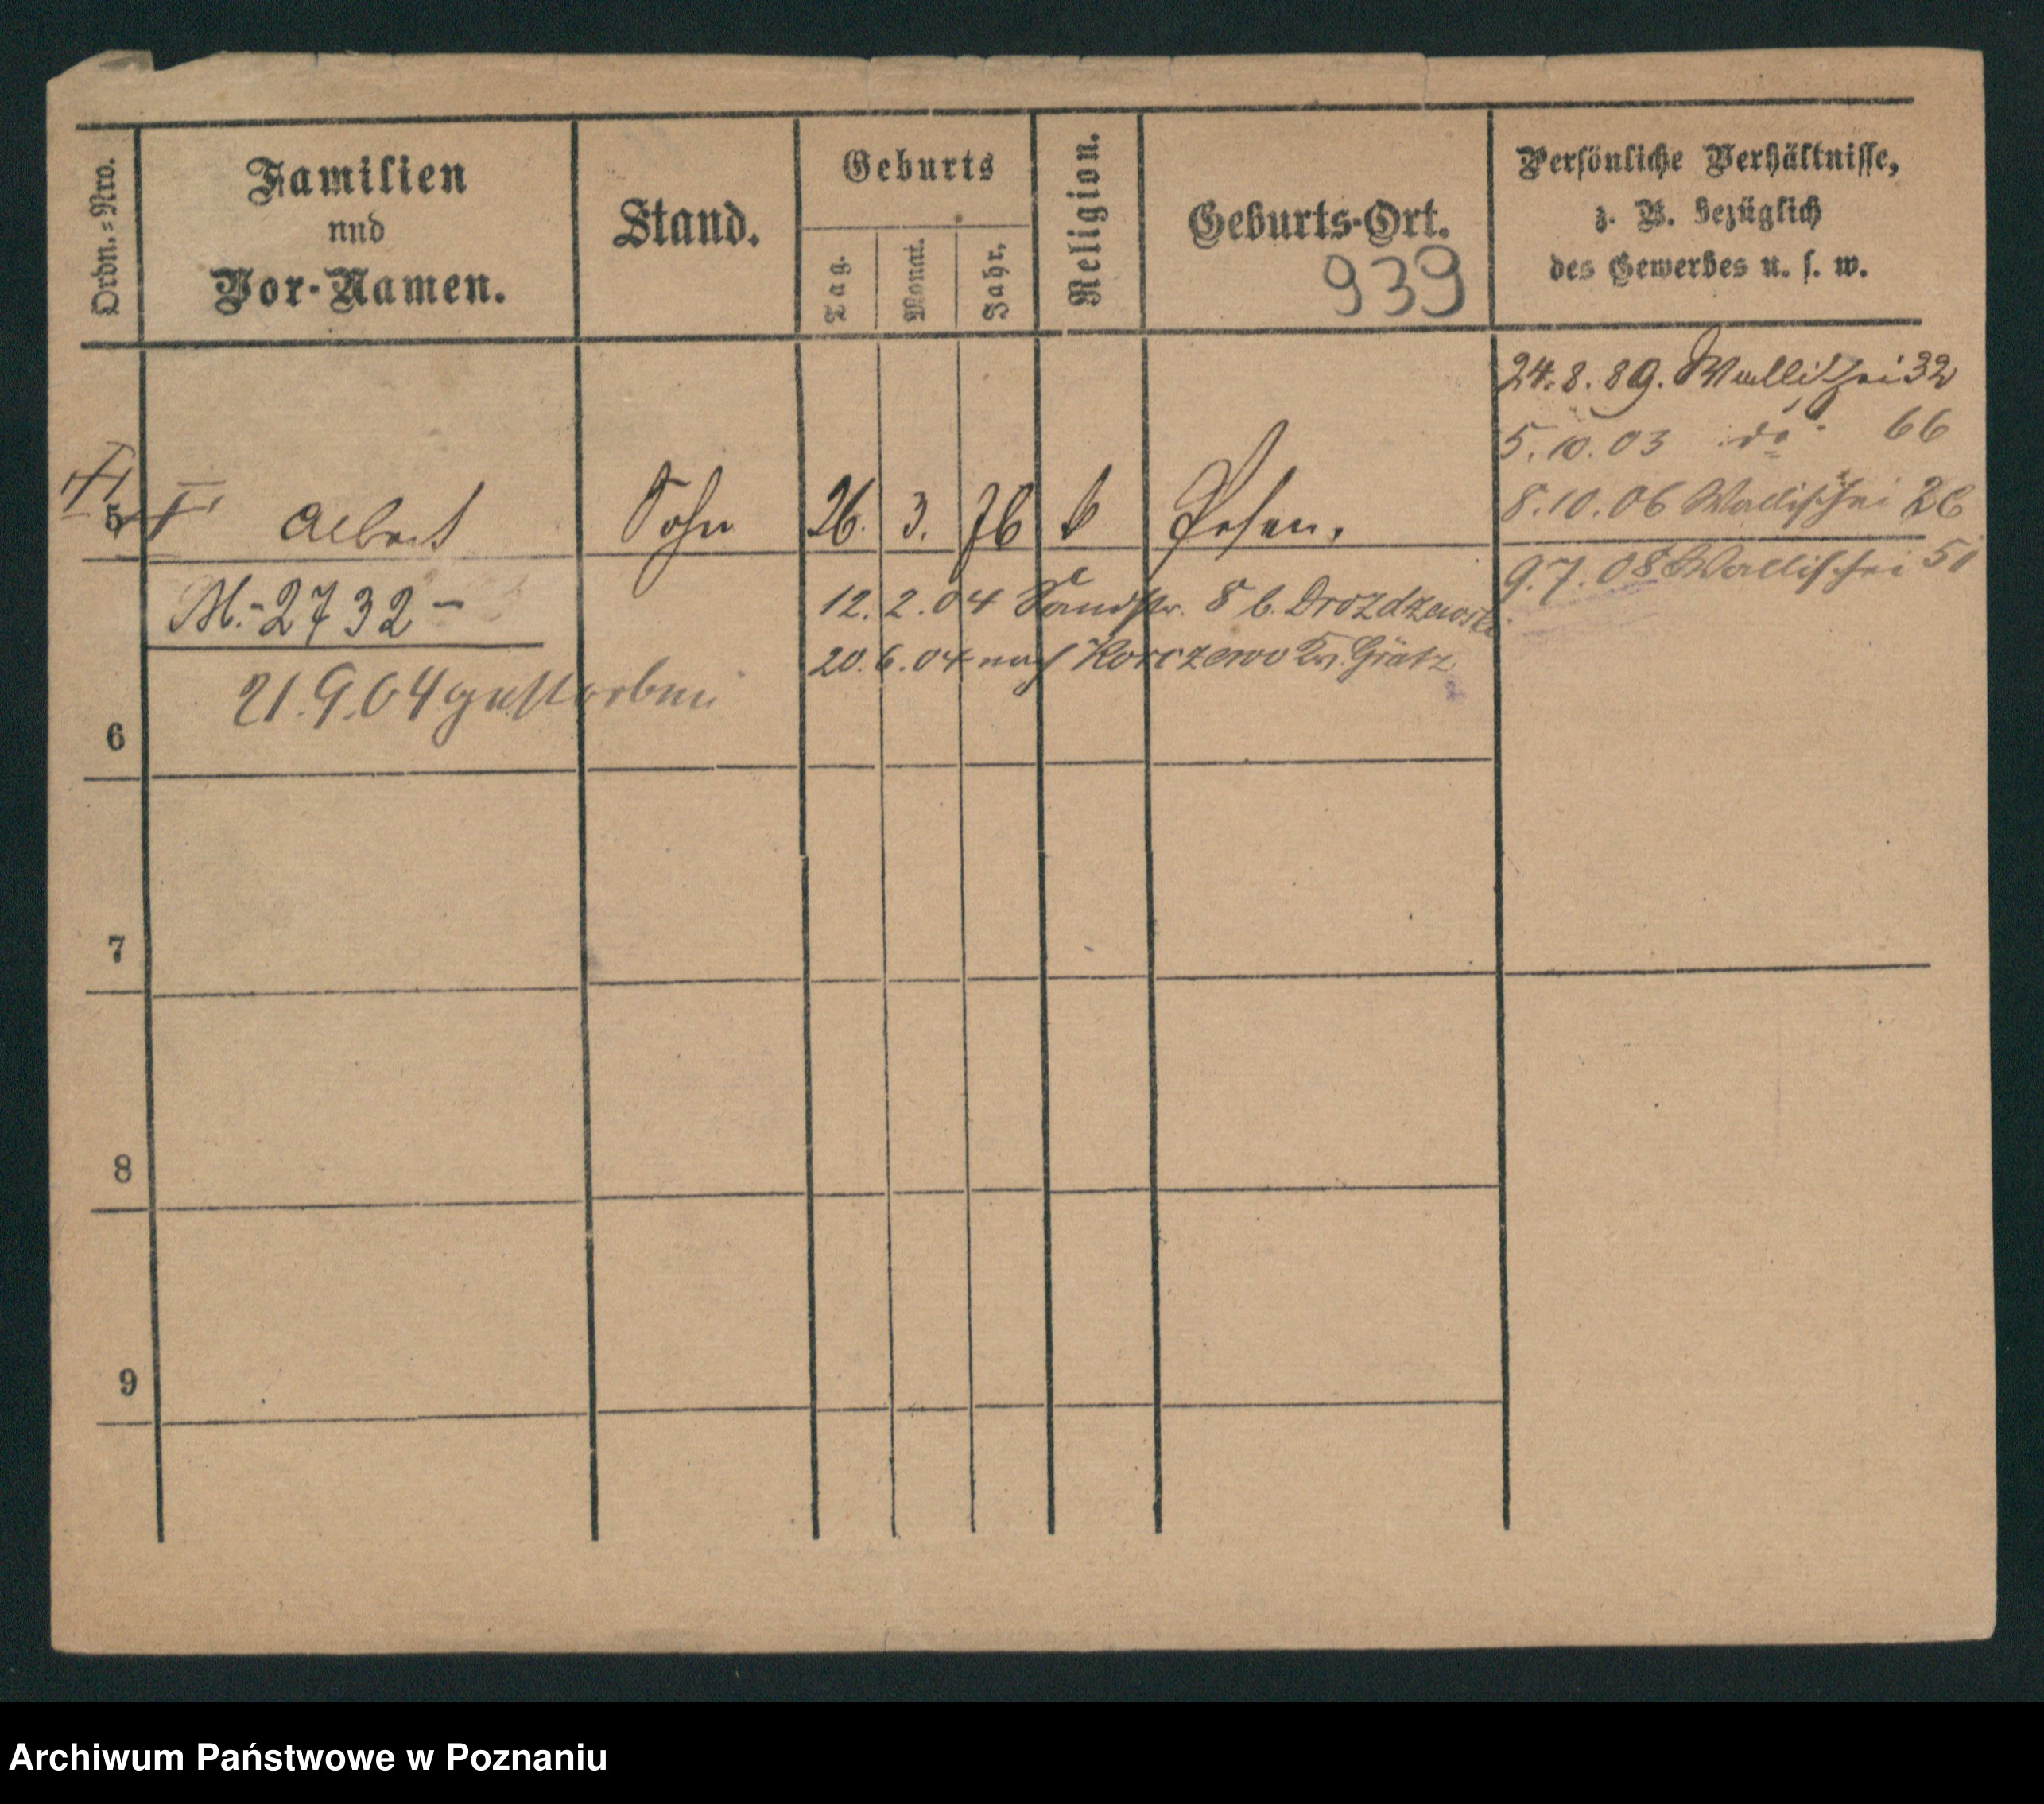 Ordn.-Nro.
Familien
und
Vor-Namen.
Stand.
Geburts
Tag.
Monat.
Jahr.
Religion.
Geburts-Ort.
939
Persönliche Verhältnisse,
z. B. bezüglich
des Gewerbes u. s. w.
24.8.89. Wallischei 32
5.10.03 do 66
8.10.06 Wallischei 26
9.7.08 Wallischei 51
5 Albert Sohn 26. 3. 76 Posen.
M.-2732-
12.2.04 Sandstr. 8 b. Drozdzewski
20.6.04 nach Korczewo Kr. Grätz
21.9.04 gestorben
6
7
8
9
Archiwum Państwowe w Poznaniu